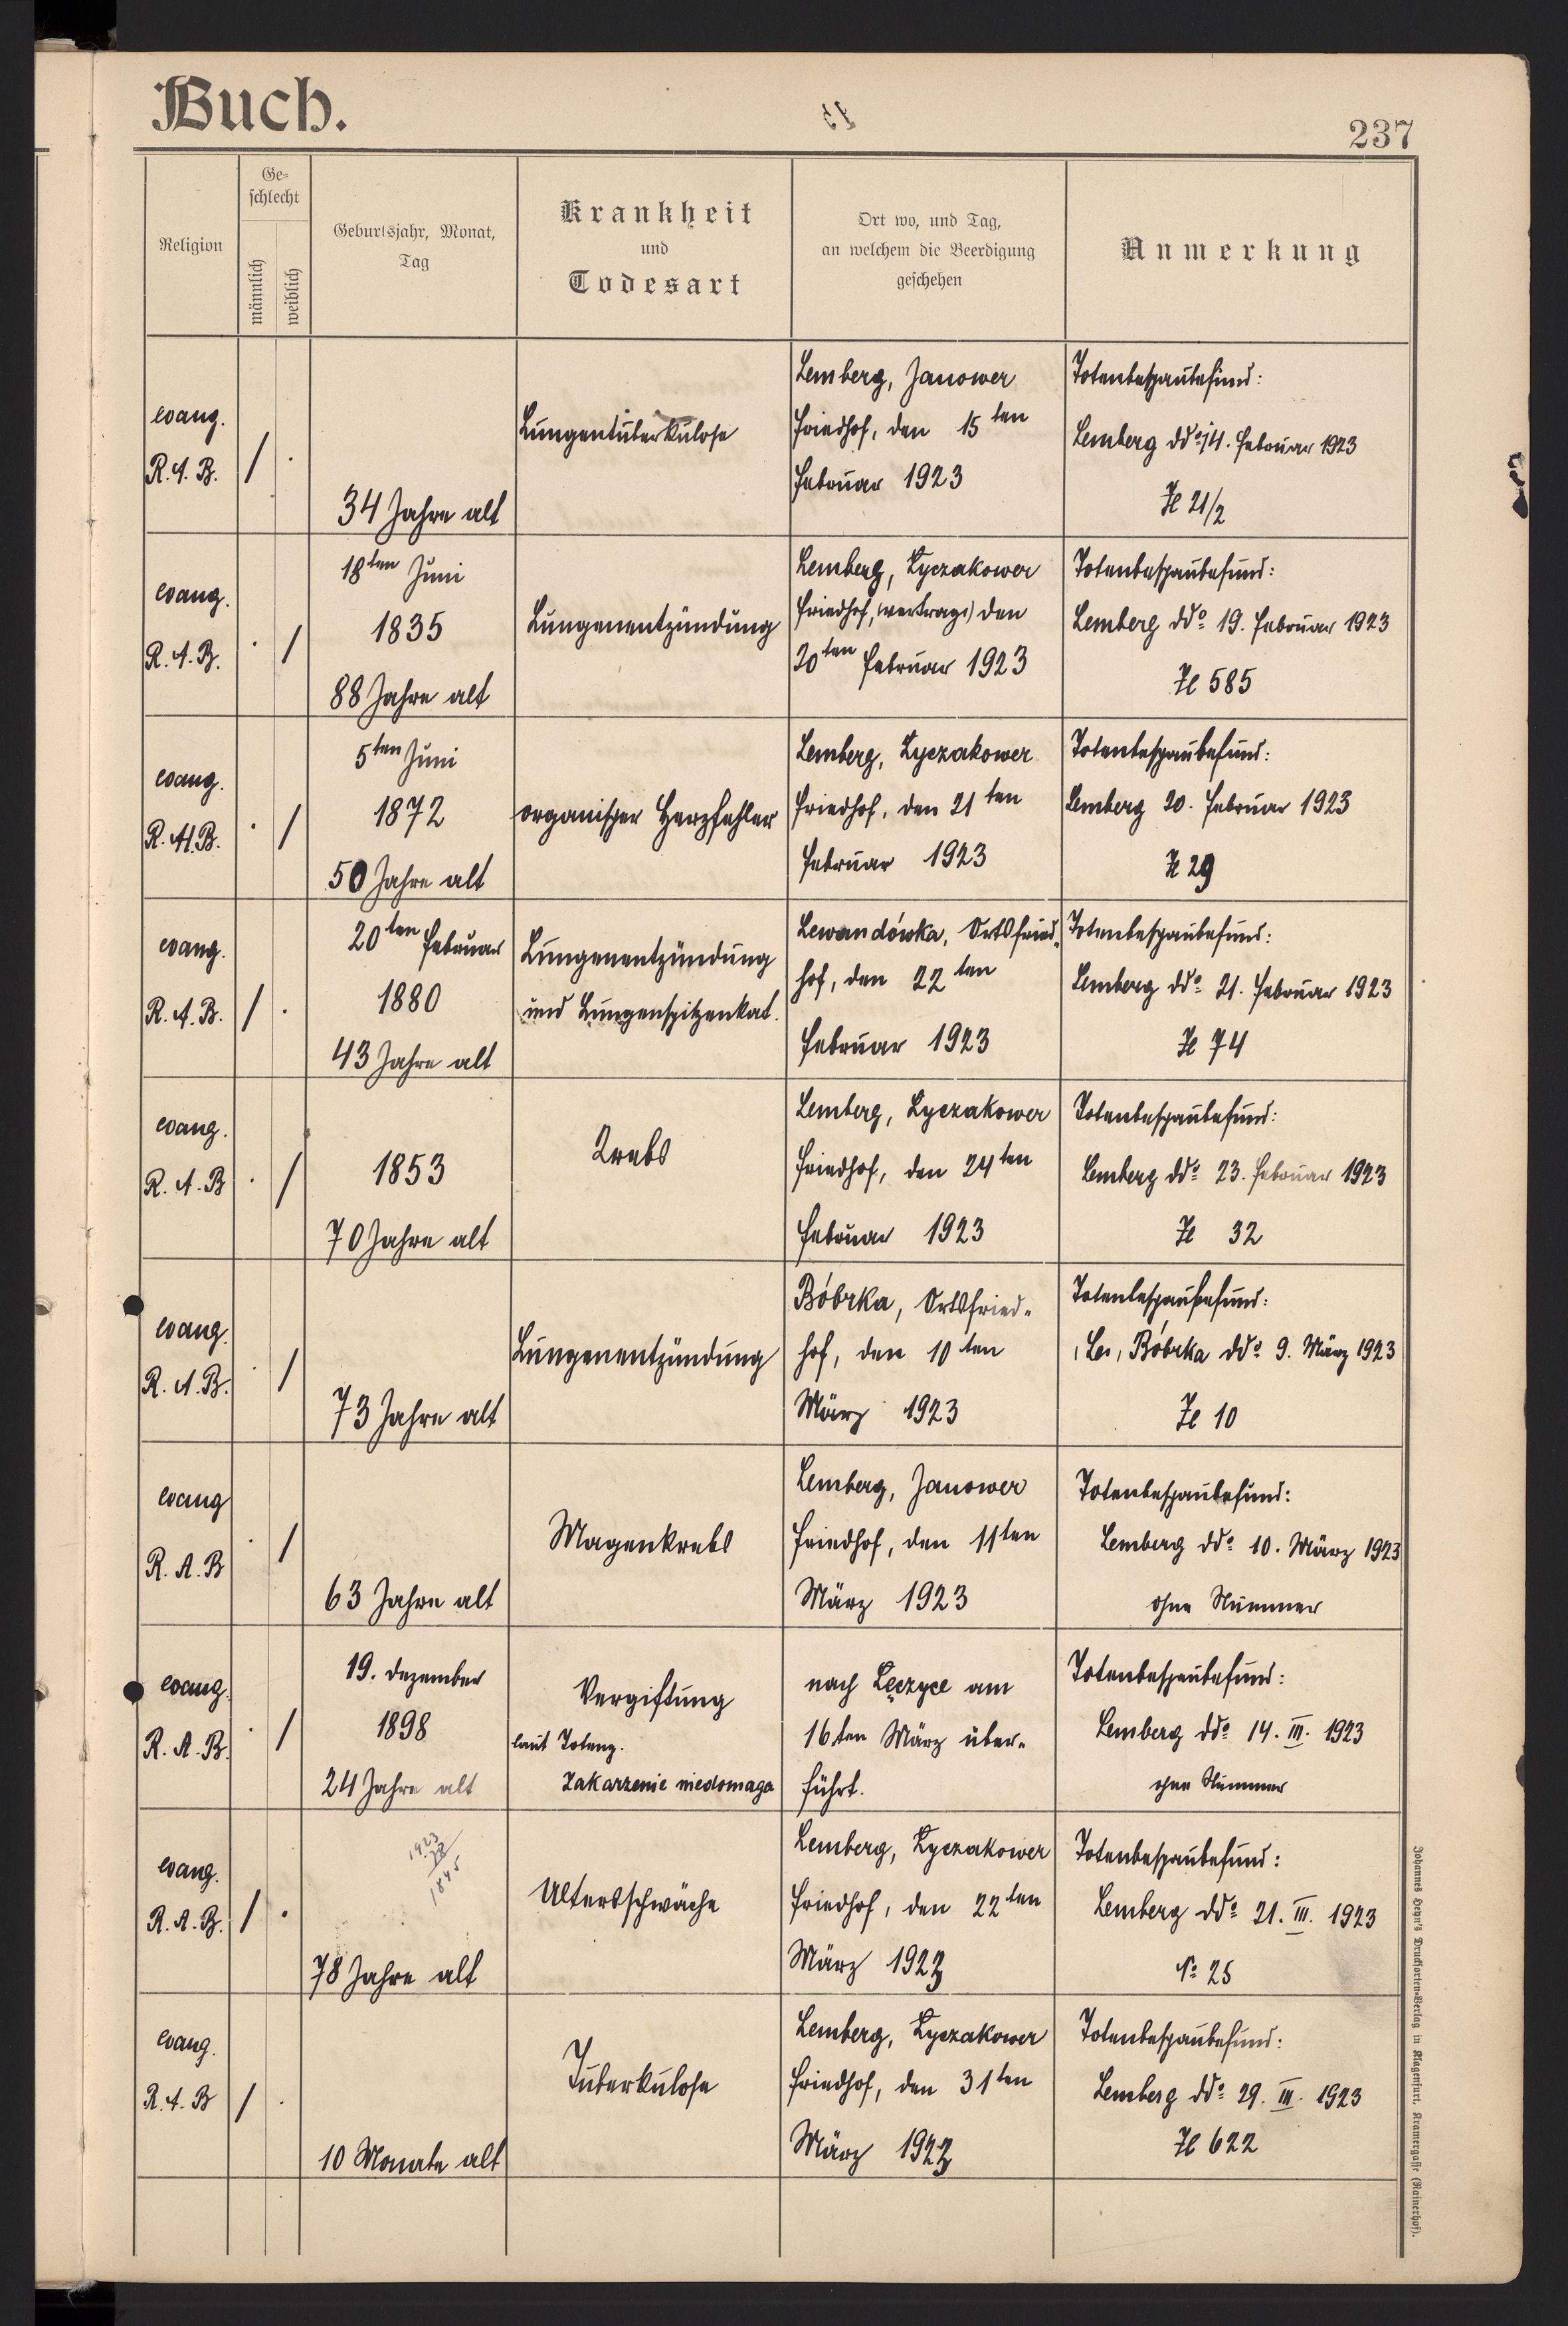 Buch.
15
237
Religion
Ge=
schlecht
männlich
weiblich
Geburtsjahr, Monat,
Tag
Krankheit
und
Todesart
Ort wo, und Tag,
an welchem die Beerdigung
geschehen
Anmerkung
evang.
R. A. B.
/ .
34 Jahre alt
Lungentuberkulose
Lemberg, Janower
Friedhof, den 15ten
Februar 1923
Totenbeschaubefund:
Lemberg ddo 14. Februar 1923
Zl 21/2
evang.
R. A. B.
. /
18ten Juni
1835
88 Jahre alt
Lungenentzündung
Lemberg, Łyczakower
Friedhof, den
20ten Februar 1923
Totenbeschaubefund:
Lemberg ddo 19. Februar 1923
Zl 585
evang.
R. H.B.
. /
5ten Juni
1872
50 Jahre alt
organischer Herzfehler
Lemberg, Łyczakower
Friedhof, den 21ten
Februar 1923
Totenbeschaubefund:
Lemberg 20. Februar 1923
Zl 29
evang.
R. A. B.
/ .
20ten Februar
1880
43 Jahre alt
Lungenentzündung
und Lungenspitzenkat.
Lewandówka, Ortsfried„
hof, den 22ten
Februar 1923
Totenbeschaubefund:
Lemberg ddo 21. Februar 1923
Zl 74
evang.
R. A. B
. /
1853
70 Jahre alt
Krebs
Lemberg, Łyczakower
Friedhof, den 24ten
Februar 1923
Totenbeschaubefund:
Lemberg ddo 23. Februar 1923
Zl 32
evang.
R. A. B.
. /
73 Jahre alt
Lungenentzündung
Bóbrka, Ortsfried„
hof, den 10ten
März 1923
Totenbeschaubefund:
Bóbrka ddo 9. März 1923
Zl 10
evang
R. A. B
. /
63 Jahre alt
Magenkrebs
Lemberg, Janower
Friedhof, den 11ten
März 1923
Totenbeschaubefund:
Lemberg ddo 10. März 1923
ohne Nummer
evang.
R. A. B.
. /
19. Dezember
1898
24 Jahre alt
Vergiftung
laut Totenz.
Zakarzenie niedomaga
nach Łęczyce am
16ten März über„
führt.
Totenbeschaubefund:
Lemberg ddo 14. III. 1923
ohne Nummer
evang.
R. A. B.
/ .
1923
78
1845
78 Jahre alt
Altersschwäche
Lemberg, Łyczakower
Friedhof, den 22ten
März 1923
Totenbeschaubefund:
Lemberg ddo 21. III. 1923
No 25
evang.
R. A. B
/ .
10 Monate alt
Tuberkulose
Lemberg, Łyczakower
Friedhof, den 31ten
März 1923
Totenbeschaubefund:
Lemberg ddo 29. III. 1923
Zl 622
Johannes Heyn's Drucksorten=Verlag in Klagenfurt, Kramergasse (Rainerhof).